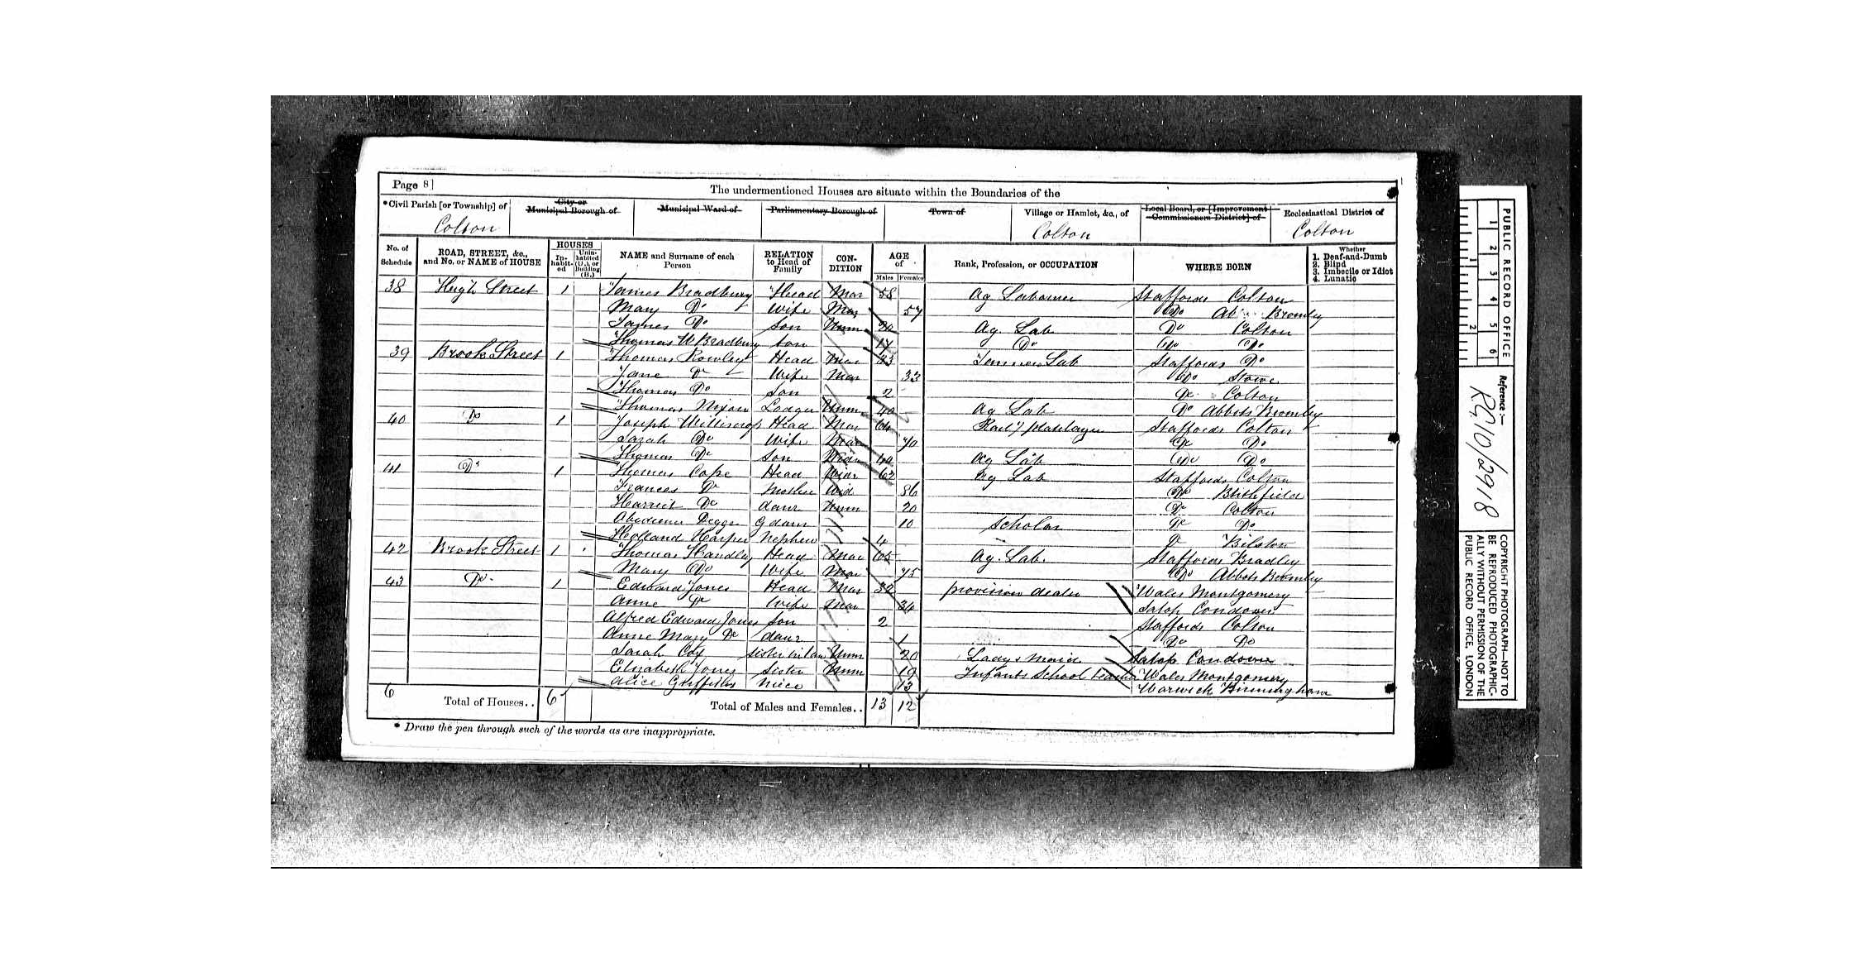 Page 8
The undermentioned Houses are situate within the Boundaries of the
*Civil Parish [or Township] of
City or Municipal Borough of
Municipal Ward of
Parliamentary Borough of
Town of
Village or Hamlet, &c., of
Local Board, or [Improvement Commissioners District] of
Ecclesiastical District of
Colton
Colton
Colton
No. of Schedule
ROAD, STREET, &c., and No. or NAME of HOUSE
HOUSES
Inhabited
Uninhabited (U.), or Building (B.)
NAME and Surname of each Person
RELATION to Head of Family
CONDITION
AGE of
Males
Females
Rank, Profession, or OCCUPATION
WHERE BORN
Whether
1. Deaf-and-Dumb
2. Blind
3. Imbecile or Idiot
4. Lunatic
38 High Street 1 James Bradbury Head Mar 58 Ag Labourer Staffords Colton
Mary Do Wife Mar 57 Do Bromley
James Do Son Unm Ag. Lab Do Colton
Thomas W Bradbury Son 17 Do Do Do
39 Brook Street 1 Thomas Rowley Head Mar 33 Lab Staffords Do
Jane Do Wife Mar 33 Do Stowe
Thomas Do Son 2 Do Colton
Thomas Nixon Lodger Unm 40 Ag Lab Do Abbots Bromley
40 Do 1 Joseph Head Mar 64 Platelayer Staffords Colton
Sarah Do Wife Mar 70 Do Do
Thomas Do Son Ag Lab Do Do
41 Do 1 Thomas Cope Head 62 Ag Lab Staffords Colton
Frances Do Mother Wid 86 Do Blithfield
Harriet Do daur Unm 20 Do Colton
G daur 10 Scholar Do Do
Holland Harper Nephew 4 Do Bilston
42 Brook Street 1 Thomas Handley Head Mar 65 Ag. Lab. Staffords Bradley
Mary Do Wife Mar 75 Do Abbots Bromley
43 Do 1 Edward Jones Head Mar 32 provision dealer Wales Montgomery
Anne Do Wife Mar 34 Salop Condover
Alfred Edward Jones Son 2 Staffords Colton
Anne Mary Do daur 1 Do Do
Sarah Cox Sister in law Unm 20 Ladys Maid Salop Condover
Elizabeth Jones Sister Unm 19 Infants School Teacher Wales Montgomery
Alice Griffiths Niece 13 Warwick Birmingham
6 Total of Houses.. 6 Total of Males and Females.. 13 12
* Draw the pen through such of the words as are inappropriate.
PUBLIC RECORD OFFICE
1 2 3 4 5 6
1 2
Reference:-
RG10/2918
COPYRIGHT PHOTOGRAPH—NOT TO BE REPRODUCED PHOTOGRAPHICALLY WITHOUT PERMISSION OF THE PUBLIC RECORD OFFICE, LONDON